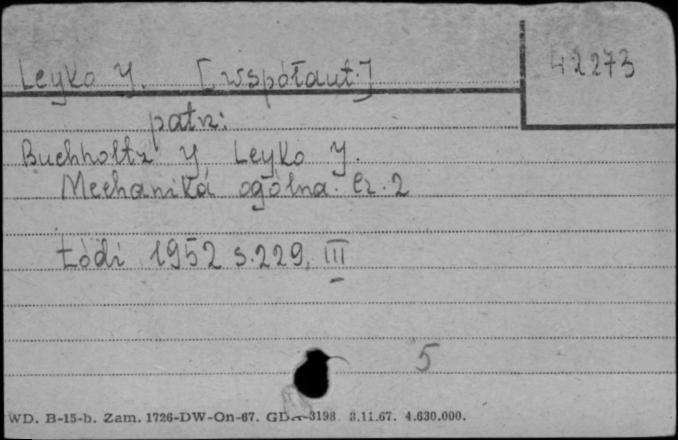 Leyko J. [współaut.]
42273
patrz:
Buchholtz J Leyko J.
Mechanika ogólna. Cz. 2
Łódź 1952 s. 229, III
5
WD. B-15-b. Zam. 1726-DW-On-67. GDA-3198 3.11.67. 4.630.000.